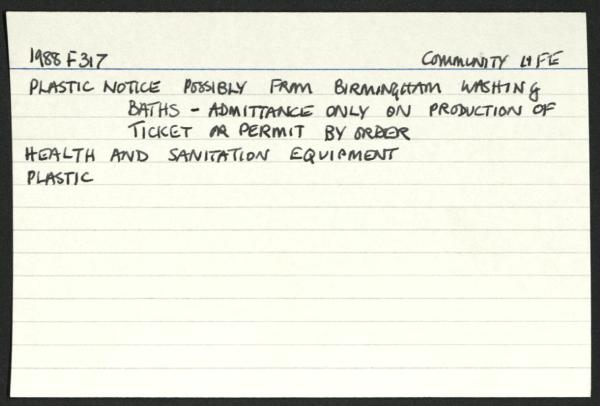 1988 F317 COMMUNITY LIFE
PLASTIC NOTICE POSSIBLY FROM BIRMINGHAM WASHING
BATHS - ADMITTANCE ONLY ON PRODUCTION OF
TICKET OR PERMIT BY ORDER
HEALTH AND SANITATION EQUIPMENT
PLASTIC